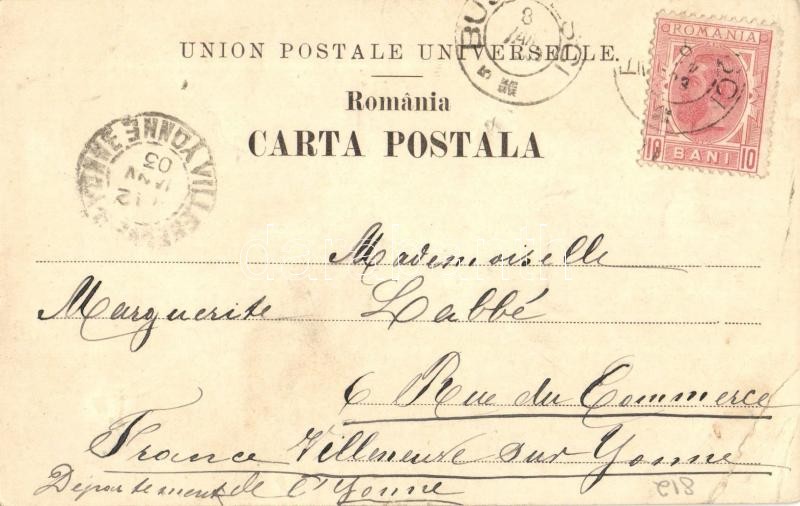 UNION POSTALE UNIVERSELLE.
România
CARTA POSTALA
ROMANIA
10 BANI 10
8
JAN
12
JANV
03
YONNE
Mademoiselle
Marguerite Labbé
6 Rue du Commerce
France Villeneuve sur Yonne
Département de l'Yonne
812